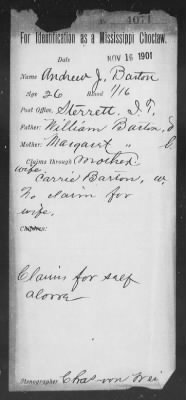 4071
For Identification as a Mississippi Choctaw.
Date NOV 16 1901
Name Andrew J. Barton
Age 26 Blood 1/16
Post Office, Sterrett, I.T.
Father: William Barton, d
Mother: Margaret "
Claims through mother
wife,
Carrie Barton, w.
No claim for
wife.
Claims for self
alone
Stenographer Chas von Wei